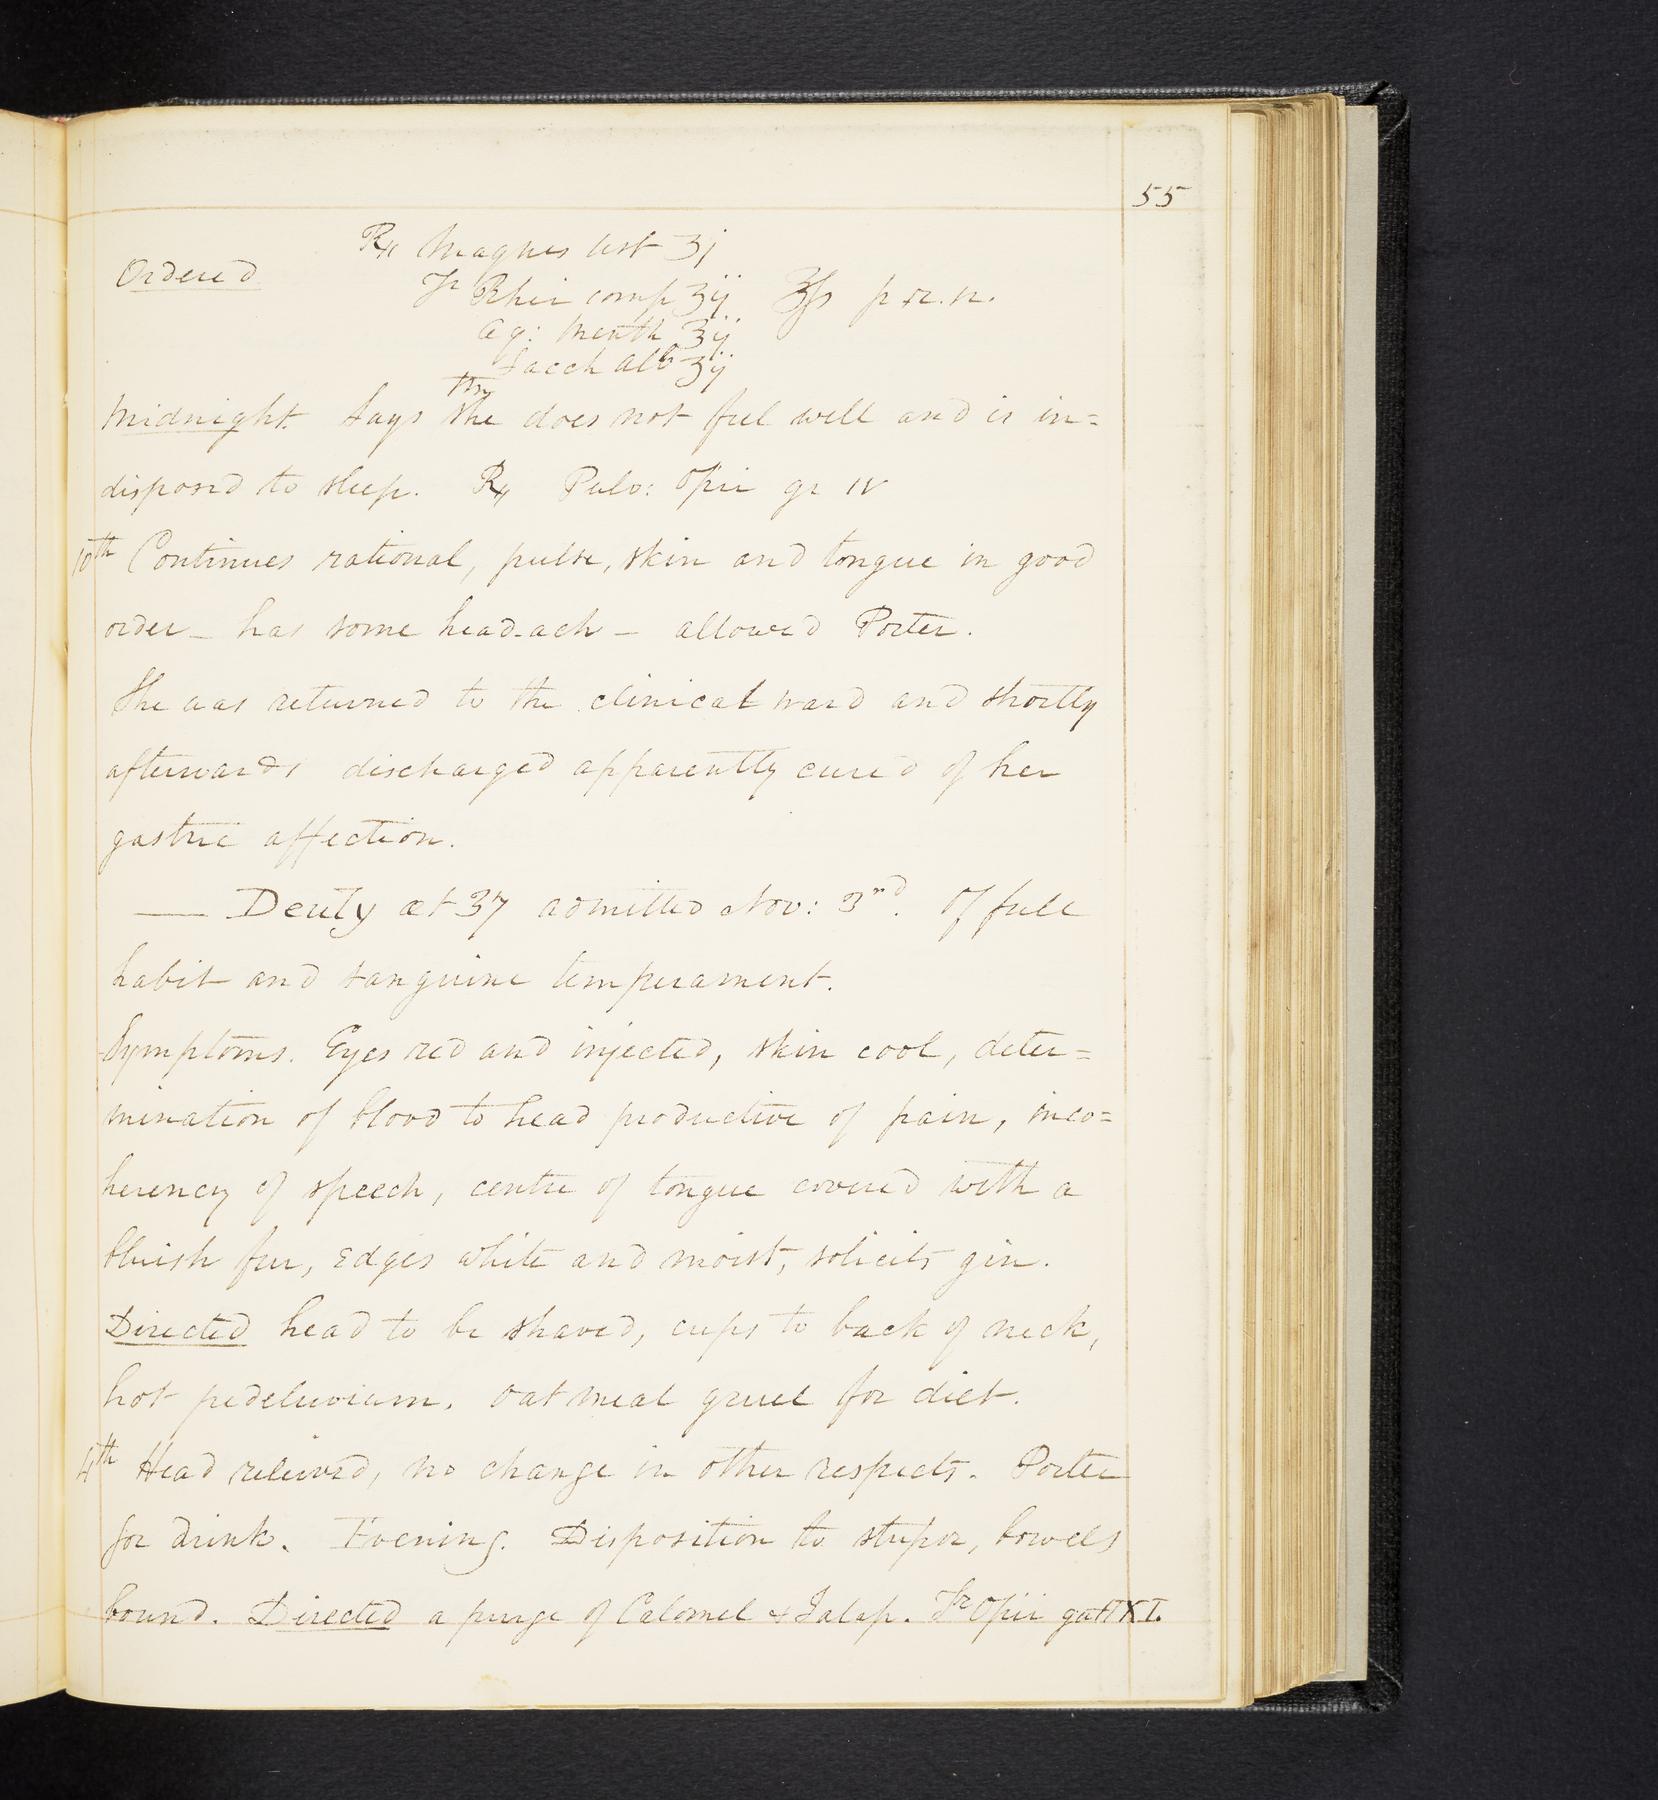 55
℞ Magnes ust ʒj
Ordered
Tr Rhei comp ʒij ℥ſs p r. n.
Aq: Menth ʒij
Sacch Alb ʒij
Midnight. Says she does not feel well and is in=
disposed to sleep. ℞ Pulv: Opii gr IV
10th Continues rational, pulse, skin and tongue in good
order – has some head-ach – allowed Porter.
She was returned to the clinical ward and shortly
afterwards discharged apparently cured of her
gastric affection.
—— Deuty æt 37 admitted Nov: 3rd. Of full
habit and sanguine temperament.
Symptoms. Eyes red and injected, skin cool, deter=
mination of blood to head productive of pain, inco=
herency of speech, centre of tongue covered with a
bluish fur, edges white and moist, solicits gin.
Directed head to be shaved, cups to back of neck,
hot pedeluvium. Oat meal gruel for diet.
4th Head relieved, no change in other respects. Porter
for drink. Evening. Disposition to stupor, bowels
bound. Directed a purge of Calomel & Jalap. Tr Opii gutt XL.